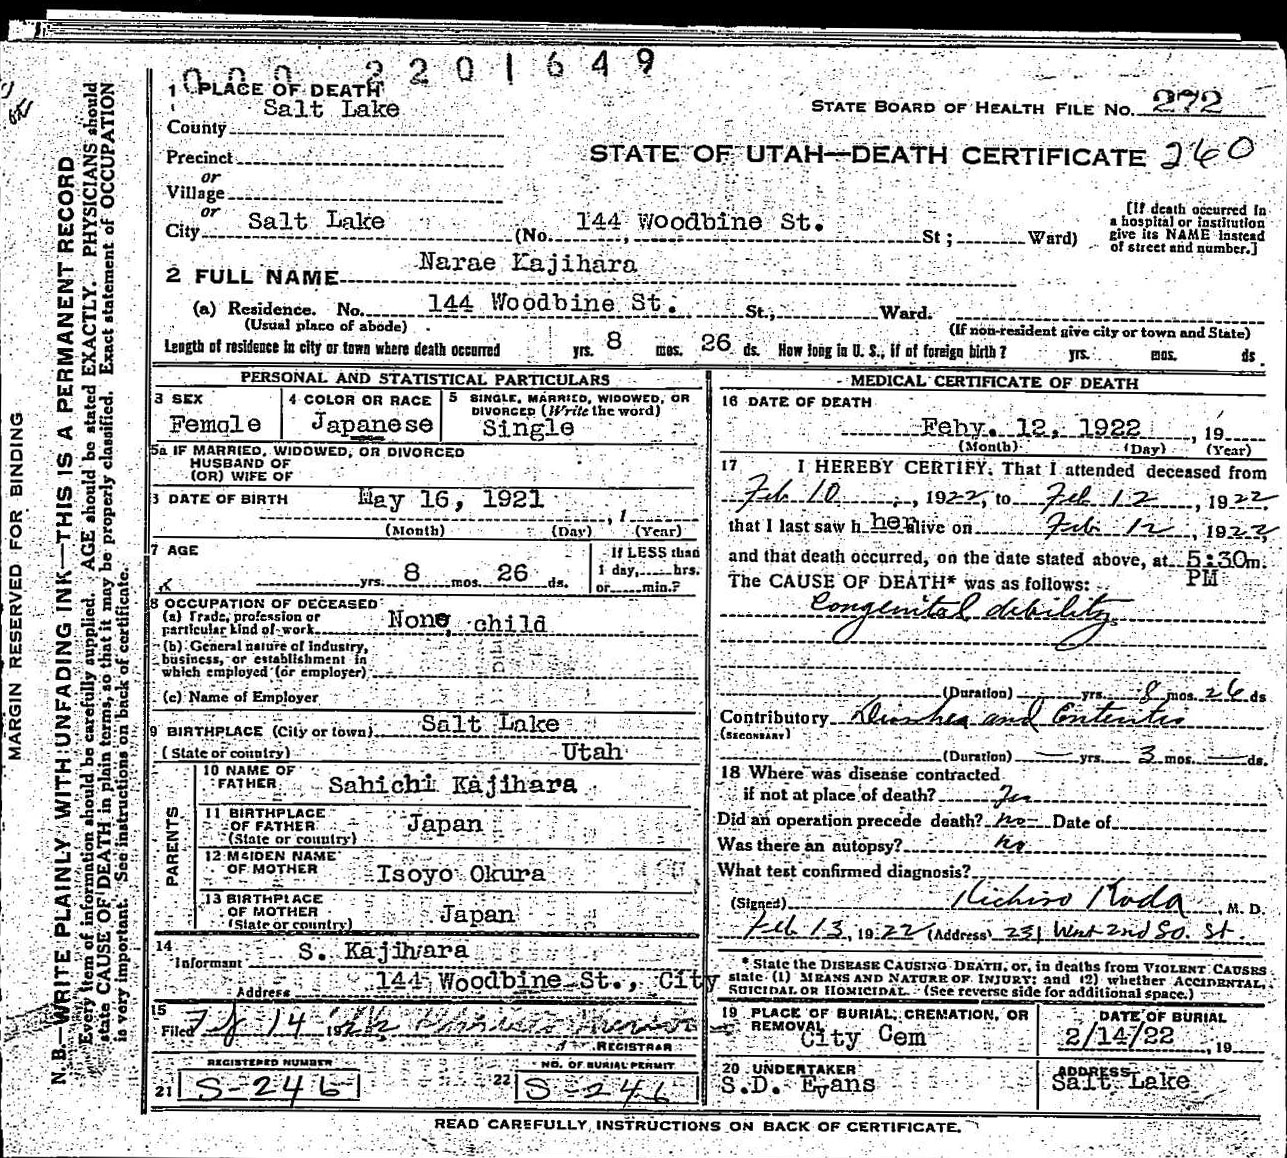 0002201649
1 PLACE OF DEATH
Salt Lake
County
STATE BOARD OF HEALTH FILE NO. 272
Precinct
STATE OF UTAH—DEATH CERTIFICATE 260
or
Village
or
City Salt Lake (No. 144 Woodbine St. St; Ward)
[If death occurred in
a hospital or institution
give its NAME instead
of street and number.]
2 FULL NAME Narae Kajihara
(a) Residence. No. 144 Woodbine St. St., Ward.
(Usual place of abode) (If non-resident give city or town and State)
Length of residence in city or town where death occurred yrs. 8 mos. 26 ds. How long in U. S., if of foreign birth? yrs. mos. ds.
PERSONAL AND STATISTICAL PARTICULARS
3 SEX
Female
4 COLOR OR RACE
Japanese
5 SINGLE, MARRIED, WIDOWED, OR
DIVORCED (Write the word)
Single
5a IF MARRIED, WIDOWED, OR DIVORCED
HUSBAND OF
(OR) WIFE OF
DATE OF BIRTH May 16, 1921 , 1
(Month) (Day) (Year)
7 AGE
yrs. 8 mos. 26 ds.
If LESS than
1 day, hrs.
or min.?
8 OCCUPATION OF DECEASED
(a) Trade, profession or
particular kind of work None, child
(b) General nature of industry,
business, or establishment in
which employed (or employer)
(c) Name of Employer
9 BIRTHPLACE (City or town) Salt Lake
(State or country) Utah
PARENTS
10 NAME OF
FATHER Sahichi Kajihara
11 BIRTHPLACE
OF FATHER Japan
(State or country)
12 MAIDEN NAME
OF MOTHER Isoyo Okura
13 BIRTHPLACE
OF MOTHER Japan
(State or country)
14
Informant S. Kajihara
Address 144 Woodbine St., City
15
Filed 14 19
REGISTRAR
REGISTERED NUMBER
21 S-246
NO. OF BURIAL PERMIT
22 S-246
MEDICAL CERTIFICATE OF DEATH
16 DATE OF DEATH
Feby. 12, 1922 , 19
(Month) (Day) (Year)
17 I HEREBY CERTIFY, That I attended deceased from
Feb 10, 1922, to Feb 12, 1922,
that I last saw h her alive on Feb 12, 1922,
and that death occurred, on the date stated above, at 5:30m.
PM
The CAUSE OF DEATH* was as follows:
Congenital debility
(Duration) yrs. 8 mos. 26 ds
Contributory Diarrhea and Enteritis
(SECONDARY)
(Duration) yrs. 3 mos. ds.
18 Where was disease contracted
if not at place of death?
Did an operation precede death? no Date of
Was there an autopsy? no
What test confirmed diagnosis?
(Signed) Kichiro Koda, M. D.
Feb 13, 1922 (Address) 231 West 2nd So. St.
* State the DISEASE CAUSING DEATH, or, in deaths from VIOLENT CAUSES
state (1) MEANS AND NATURE OF INJURY; and (2) whether ACCIDENTAL,
SUICIDAL OR HOMICIDAL. (See reverse side for additional space.)
19 PLACE OF BURIAL, CREMATION, OR
REMOVAL
City Cem
DATE OF BURIAL
2/14/22 , 19
20 UNDERTAKER
S.D. Evans
ADDRESS
Salt Lake
READ CAREFULLY INSTRUCTIONS ON BACK OF CERTIFICATE.
MARGIN RESERVED FOR BINDING
N. B.—WRITE PLAINLY WITH UNFADING INK—THIS IS A PERMANENT RECORD
Every item of information should be carefully supplied. AGE should be stated EXACTLY. PHYSICIANS should
state CAUSE OF DEATH in plain terms, so that it may be properly classified. Exact statement of OCCUPATION
is very important. See instructions on back of certificate.